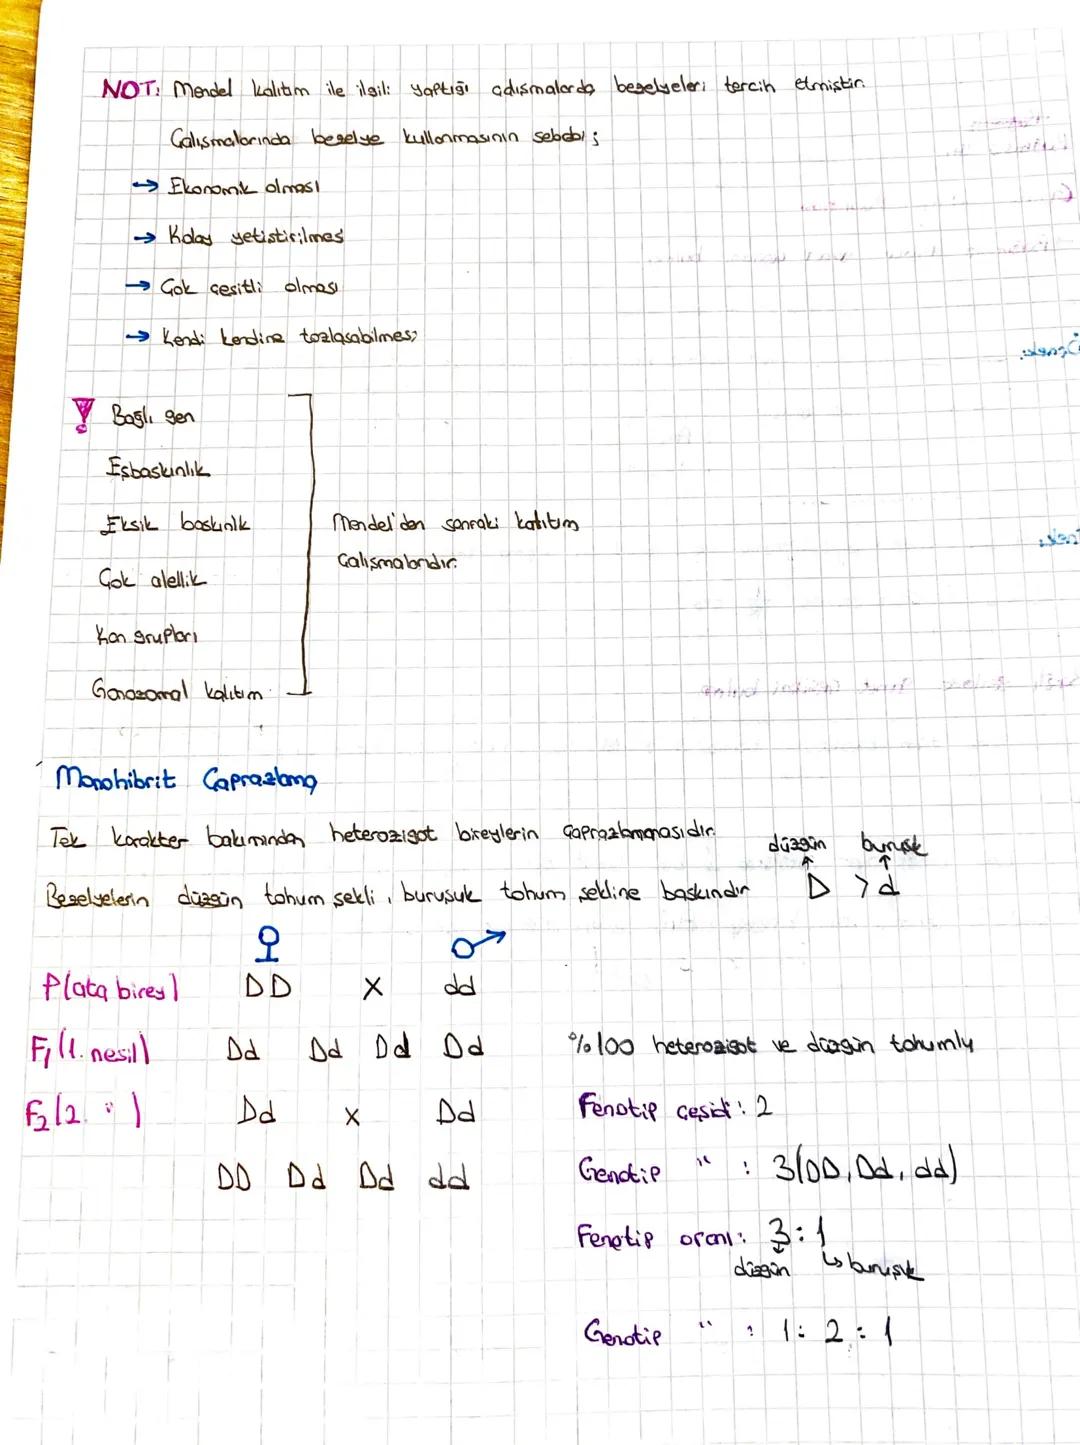 NOT: Mendel kalıtım ile ilgili yaptığı çalışmalarda bezelyeleri tercih etmiştir.
Çalışmalarında bezelye kullanmasının sebebi;
→ Ekonomik olması
→ Kolay yetiştirilmesi
→ Çok çeşitli olması
→ Kendi kendine tozlaşabilmesi
! Bağlı gen
Eşbaskınlık
Eksik baskınlık
Çok alellik
Kan grupları
Gonozomal kalıtım
Mendel'den sonraki kalıtım
çalışmalarıdır.
Monohibrit Çaprazlama
Tek karakter bakımından heterozigot bireylerin çaprazlanmasıdır.
düzgün buruşuk
Bezelyelerin düzgün tohum şekli, buruşuk tohum şekline baskındır D > d
♀ ♂
P(ata birey) DD X dd
F₁(1. nesil) Dd Dd Dd Dd %100 heterozigot ve düzgün tohumlu
F₂(2. ") Dd X Dd
DD Dd Dd dd
Fenotip çeşidi: 2
Genotip " : 3(DD, Dd, dd)
Fenotip oranı: 3:1
düzgün ↳ buruşuk
Genotip " : 1: 2 : 1